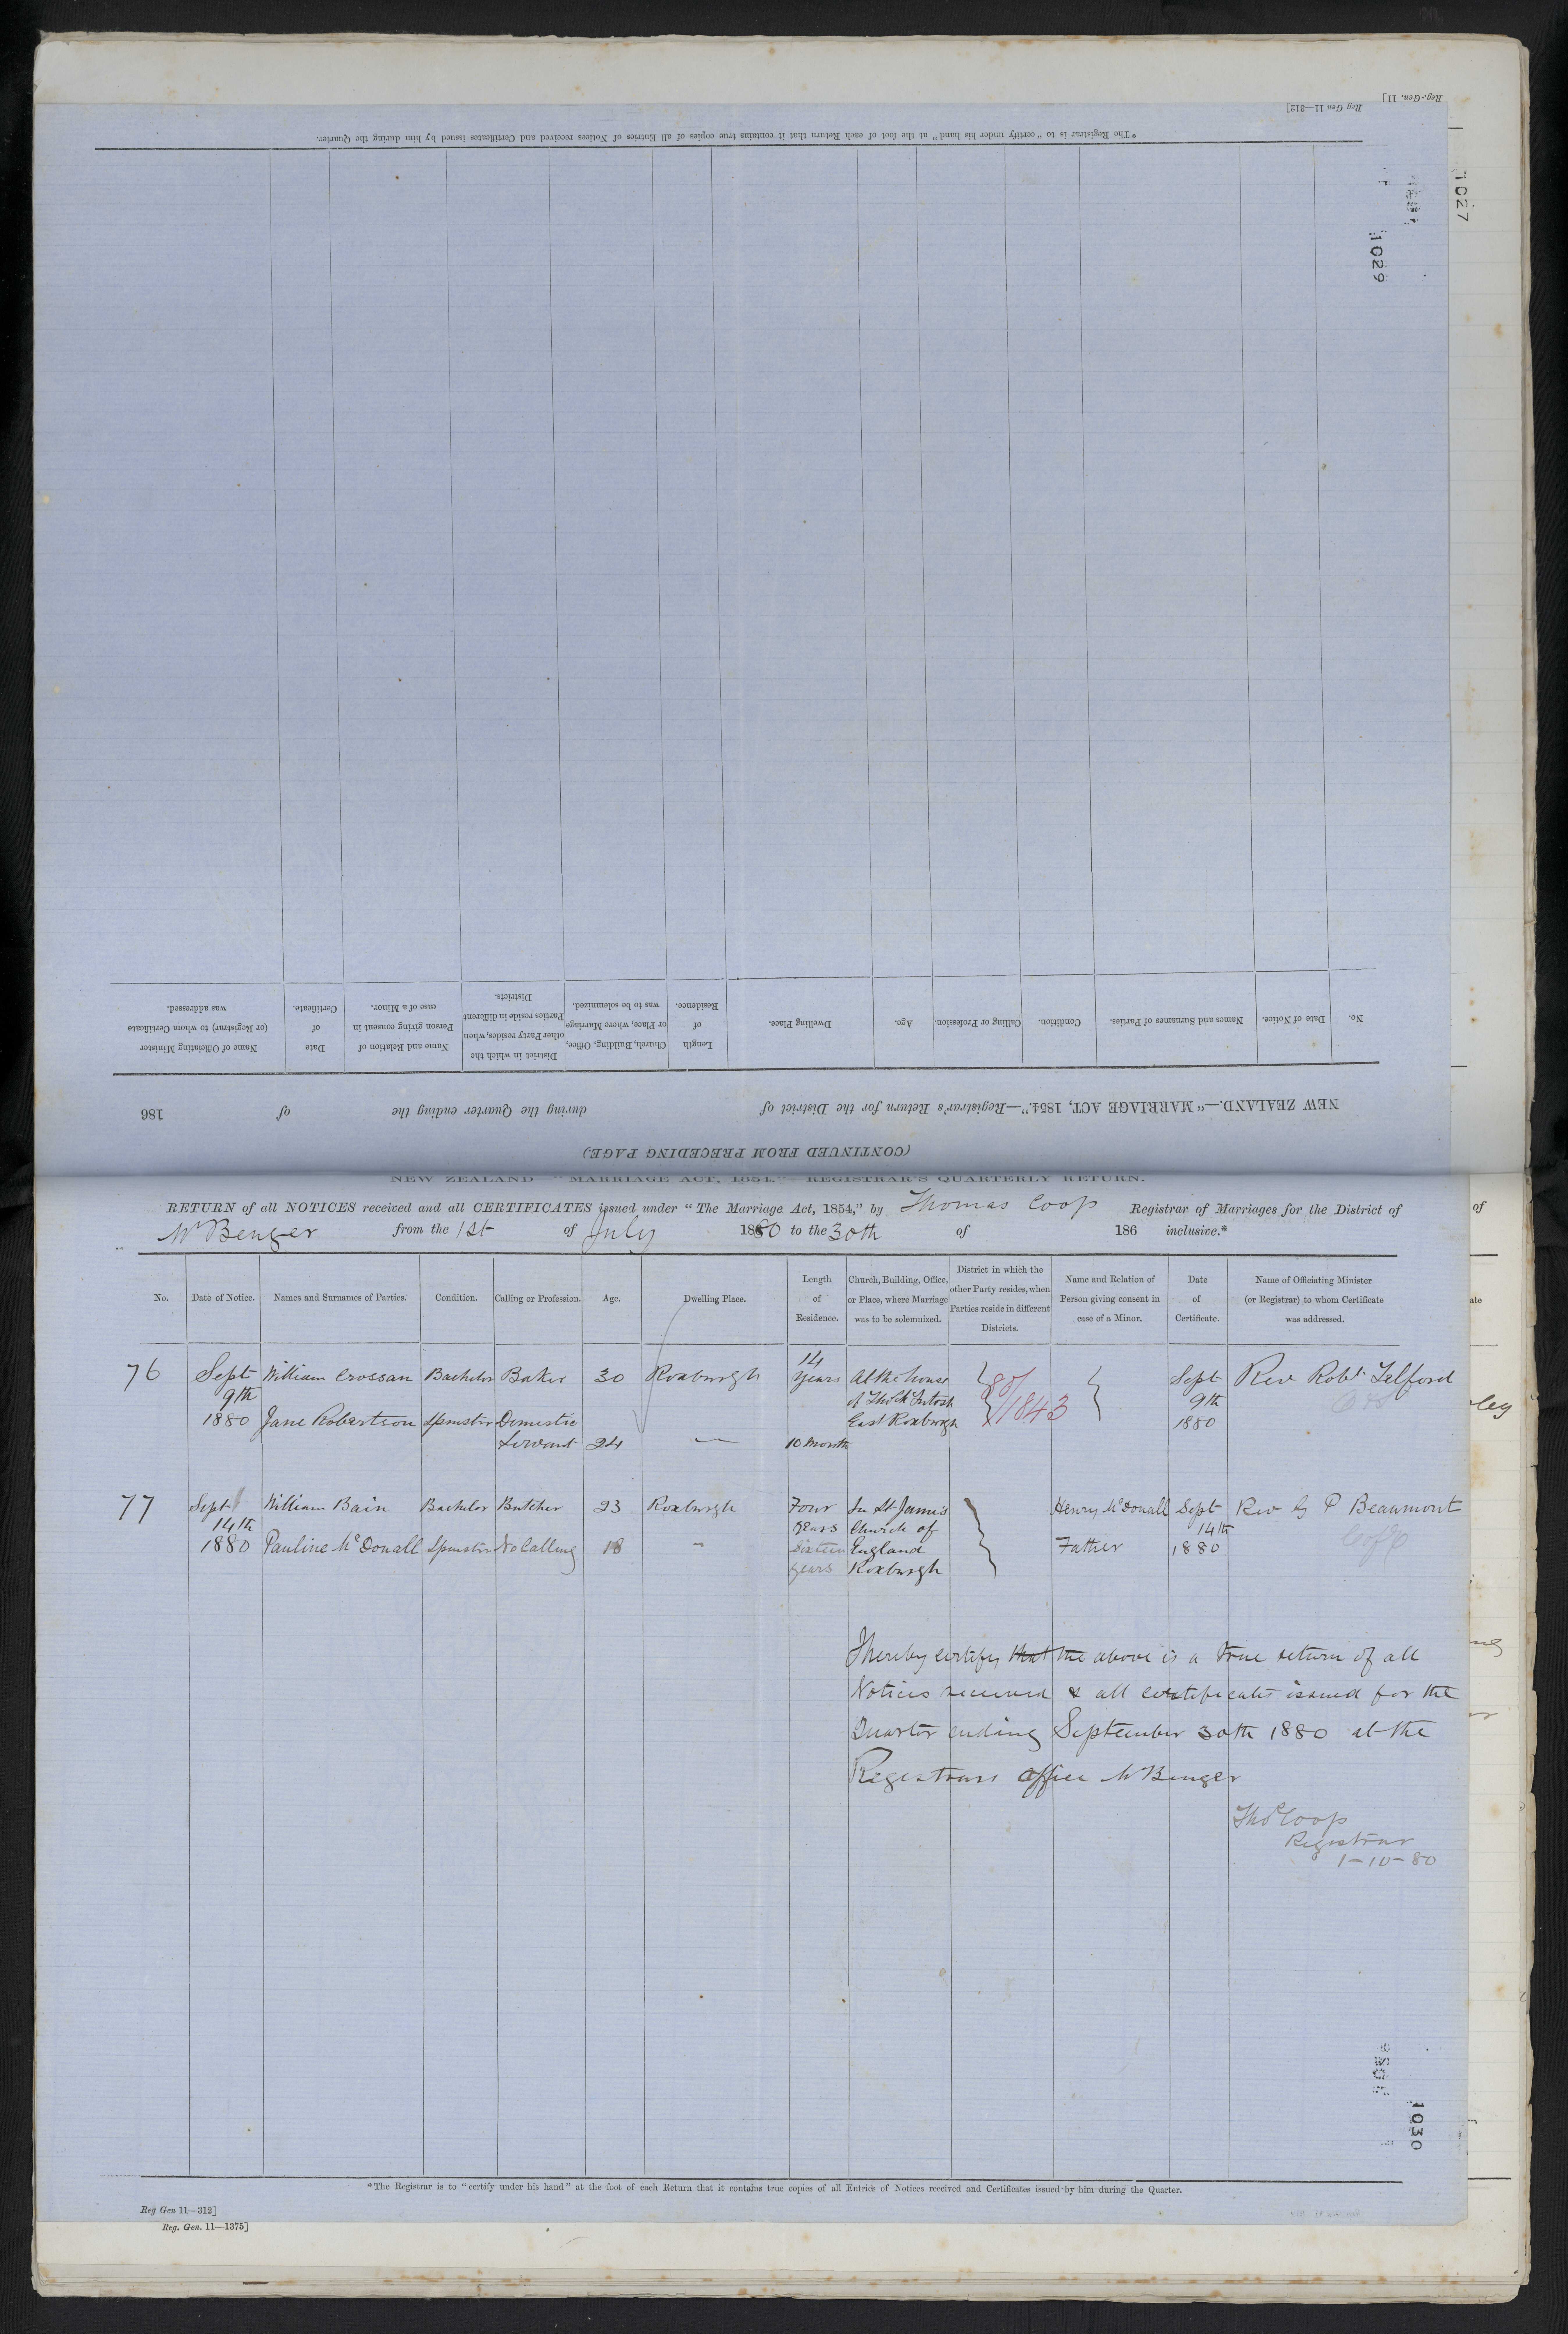 Reg. Gen. 11]
Reg Gen 11—312]
* The Registrar is to "certify under his hand" at the foot of each Return that it contains true copies of all Entries of Notices received and Certificates issued by him during the Quarter.
1027
1029
(CONTINUED FROM PRECEDING PAGE.)
NEW ZEALAND.—"MARRIAGE ACT, 1854."—Registrar's Return for the District of during the Quarter ending the of 186
No. Date of Notice. Names and Surnames of Parties. Condition. Calling or Profession. Age. Dwelling Place. Length of Residence. Church, Building, Office, or Place, where Marriage was to be solemnized. District in which the other Party resides, when Parties reside in different Districts. Name and Relation of Person giving consent in case of a Minor. Date of Certificate. Name of Officiating Minister (or Registrar) to whom Certificate was addressed.
NEW ZEALAND—"MARRIAGE ACT, 1854."—REGISTRAR'S QUARTERLY RETURN.
RETURN of all NOTICES received and all CERTIFICATES issued under "The Marriage Act, 1854," by Thomas Coop Registrar of Marriages for the District of
Mt Benger from the 1st of July 1880 to the 30th of 186 inclusive.*
No. Date of Notice. Names and Surnames of Parties. Condition. Calling or Profession. Age. Dwelling Place. Length of Residence. Church, Building, Office, or Place, where Marriage was to be solemnized. District in which the other Party resides, when Parties reside in different Districts. Name and Relation of Person giving consent in case of a Minor. Date of Certificate. Name of Officiating Minister (or Registrar) to whom Certificate was addressed.
14
76 Sept William Crossan Bachelor Baker 30 Roxburgh Years At the house Sept Rev Robt Telford
9th of Thos McIntosh 80/1843 9th
1880 Jane Robertson Spinster Domestic East Roxburgh 1880
Servant 24 — 10 Month
77 Sept William Bain Bachelor Butcher 23 Roxburgh Four In St James Henry McDonall Sept Rev G P Beaumont
14th years Church of 14th
1880 Pauline McDonall Spinster No Calling 18 - Sixteen England Father 1880 C of E
years Roxburgh
I hereby certify that the above is a true return of all
Notices received & all certificates issued for the
Quarter ending September 30th 1880 at the
Registrars Office Mt Benger
Thos Coop
Registrar
1-10-80
1030
* The Registrar is to "certify under his hand" at the foot of each Return that it contains true copies of all Entries of Notices received and Certificates issued by him during the Quarter.
Reg Gen 11—312]
Reg. Gen. 11—1375]